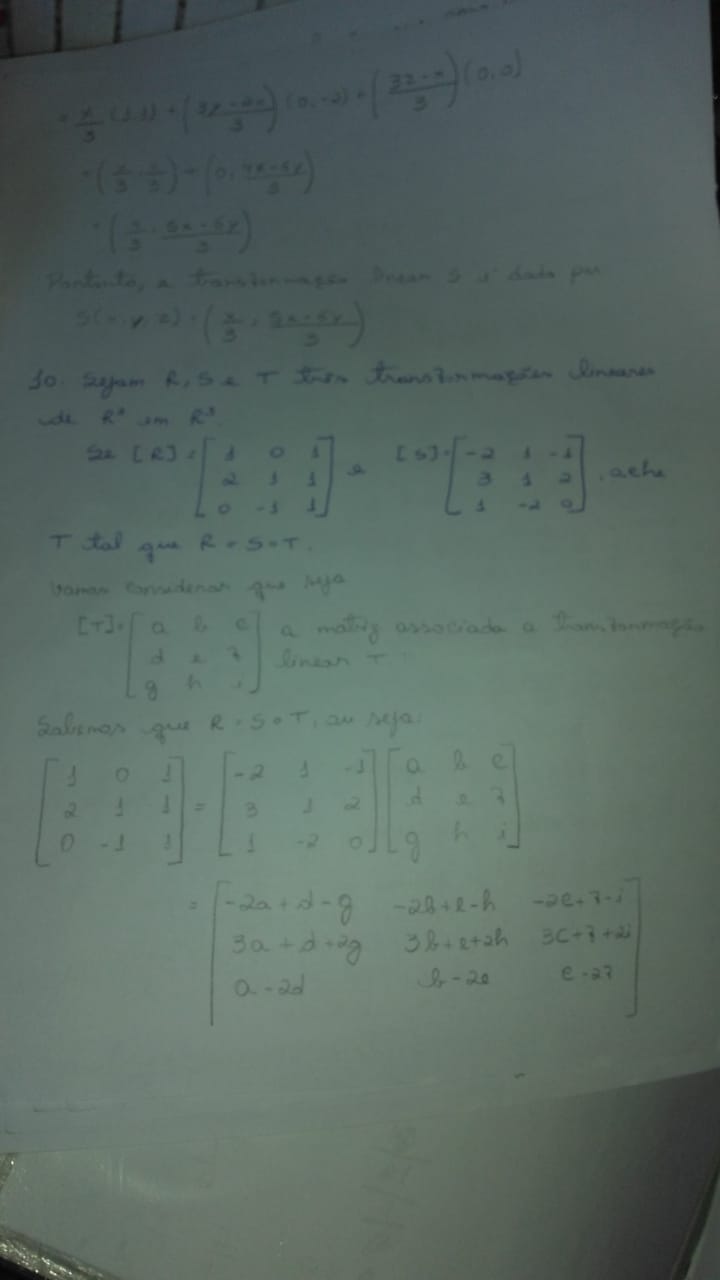 = x/3 (1,1) + (3y-2x / 3) (0,-2) + (3z-x / 3) (0,0)
= (x/3, x/3) + (0, 4x-6y / 3)
= (x/3, 5x-6y / 3)
Portanto, a transformação linear S é dada por
S(x,y,z) = (x/3, 5x-6y / 3)
10. Sejam R, S e T três transformações lineares
de R³ em R³.
Se [R] = [1 0 1
2 1 1
0 -1 1] e [S] = [-2 1 -1
3 1 2
1 -2 0], ache
T tal que R = S∘T.
Vamos considerar que seja
[T] = [a b c
d e f
g h i] a matriz associada a transformação
linear T
Sabemos que R = S∘T, ou seja:
[1 0 1] = [-2 1 -1] [a b c]
[2 1 1] [3 1 2] [d e f]
[0 -1 1] [1 -2 0] [g h i]
= [-2a+d-g -2b+e-h -2c+f-i]
[3a+d+2g 3b+e+2h 3c+f+2i]
[a-2d b-2e c-2f]